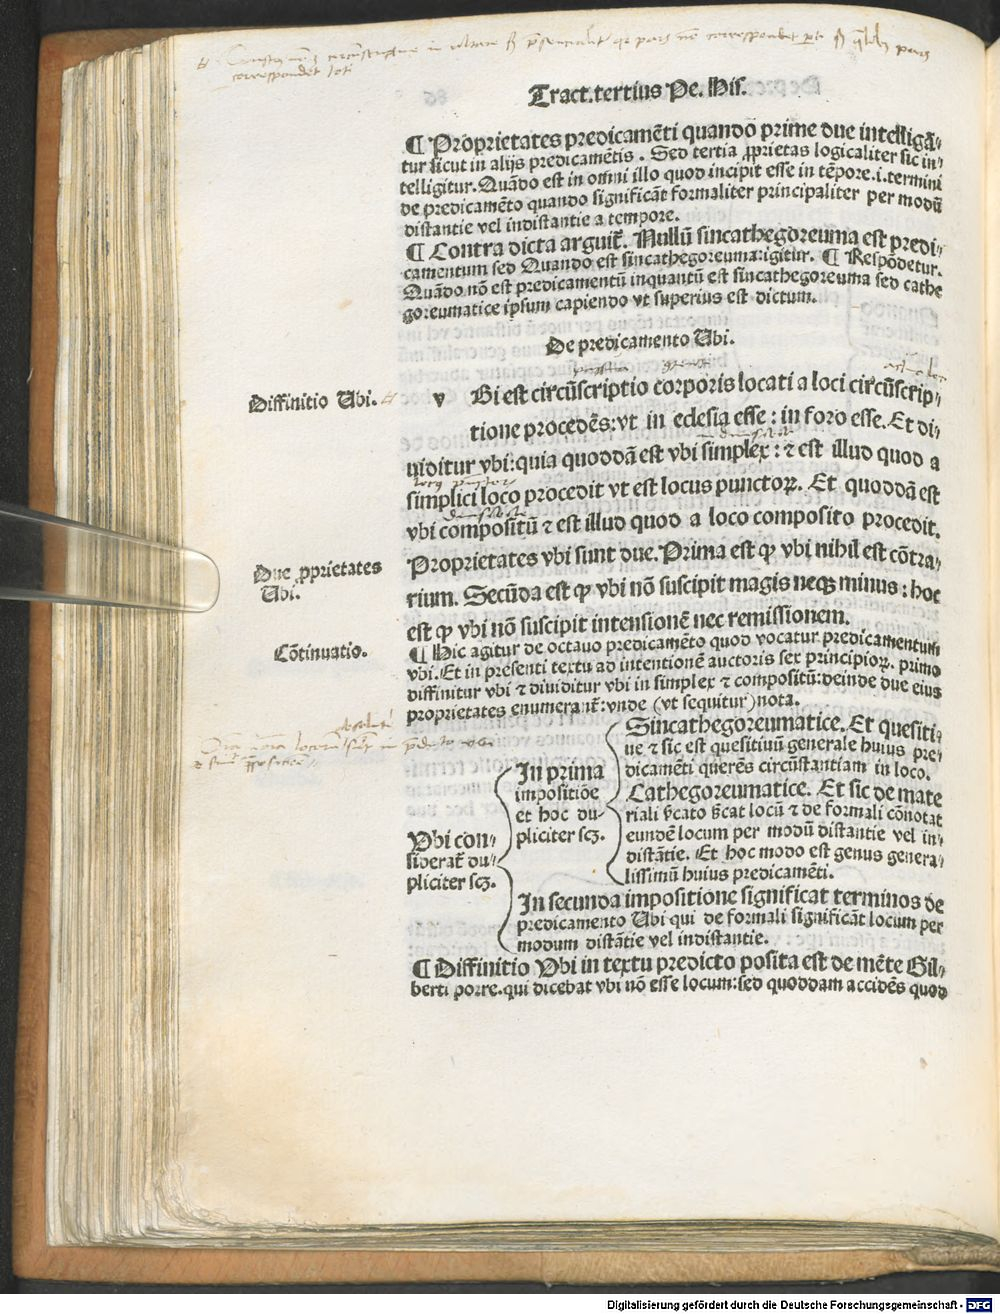 correspondet toti
Tract. tertius Pe. His.
¶ Proprietates predicamēti quando prime due intelligā-
tur sicut in alijs predicamētis. Sed tertia ꝓprietas logicaliter sic in-
telligitur. Quādo est in omni illo quod incipit esse in tēpore .i. termini
de predicamēto quando significāt formaliter principaliter per modū
distantie vel indistantie a tempore.
¶ Contra dicta arguit̄. Nullū sincathegoreuma est predi-
camentum sed Quando est sincathegoreuma: igitur. ¶ Respōdetur.
Quādo nō est predicamentū inquantū est sincathegoreuma sed cathe
goreumatice ipsum capiendo vt superius est dictum.
De predicamento Ubi.
Diffinitio Ubi.
v Bi est circūscriptio corporis locati a loci circūscrip-
tione procedēs: vt in eclesia esse: in foro esse. Et di-
uiditur vbi: quia quoddā est vbi simplex: ⁊ est illud quod a
simplici loco procedit vt est locus punctoꝝ. Et quoddā est
vbi compositū ⁊ est illud quod a loco composito procedit.
Due ꝓprietates
Ubi.
Proprietates vbi sunt due. Prima est ꝙ vbi nihil est cōtra-
rium. Secūda est ꝙ vbi nō suscipit magis neqꝫ minus: hoc
est ꝙ vbi nō suscipit intensionē nec remissionem.
Cōtinuatio.
¶ Hic agitur de octauo predicamēto quod vocatur predicamentum
vbi. Et in presenti textu ad intentionē auctoris sex principioꝝ. primo
diffinitur vbi ⁊ diuiditur vbi in simplex ⁊ compositū: deinde due eius
proprietates enumerant̄: vnde (vt sequitur) nota.
Vbi con-
siderat̄ du-
pliciter scꝫ.
In prima
impositiōe
et hoc du-
pliciter scꝫ.
Sincathegoreumatice. Et quesiti-
ue ⁊ sic est quesitiuū generale huius pre-
dicamēti querēs circūstantiam in loco.
Cathegoreumatice. Et sic de mate
riali ẜcato ẜcat locū ⁊ de formali cōnotat
eundē locum per modū distantie vel in-
distātie. Et hoc modo est genus genera-
lissimū huius predicamēti.
In secunda impositione significat terminos de
predicamento Ubi qui de formali significāt locum per
modum distātie vel indistantie.
¶ Diffinitio Vbi in textu predicto posita est de mēte Gil-
berti porre. qui dicebat vbi nō esse locum: sed quoddam accidēs quod
Digitalisierung gefördert durch die Deutsche Forschungsgemeinschaft - DFG